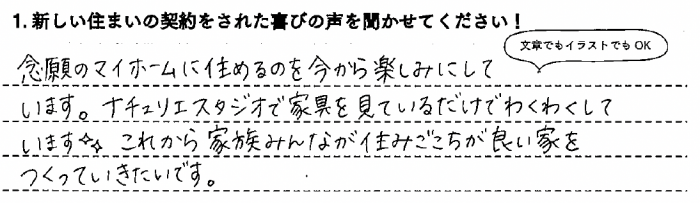 1. 新しい住まいの契約をされた喜びの声を聞かせてください！
文章でもイラストでも OK
念願のマイホームに住めるのを今から楽しみにして
います。ナチュリエスタジオで家具を見ているだけでわくわくして
います✨ これから家族みんなが住みごこちが良い家を
つくっていきたいです。